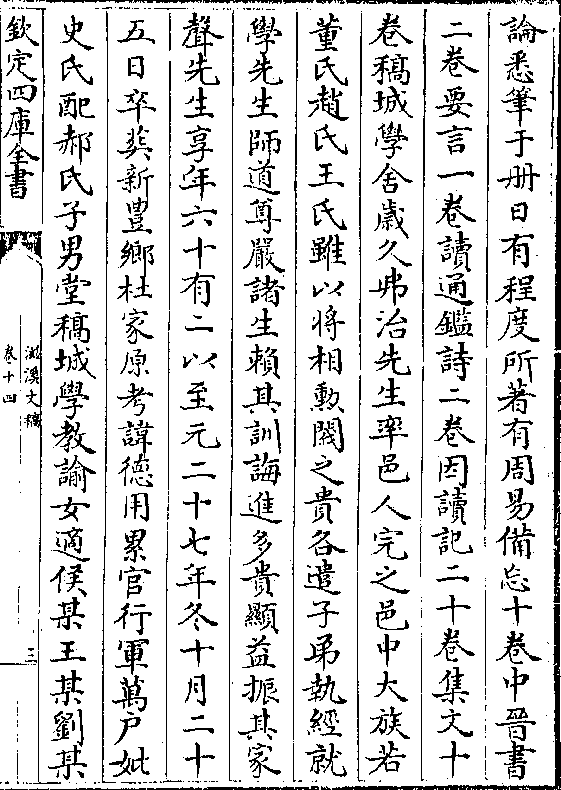 論悉筆于册日有程度所著有周易備忘十卷中晉書
二卷要言一卷讀通鑑詩二卷因讀記二十卷集文十
卷稿城學舍歲久弗治先生率邑人完之邑中大族若
董氏趙氏王氏雖以將相勳閥之貴各遣子弟執經就
學先生師道尊嚴諸生賴其訓誨進多貴顯益振其家
聲先生享年六十有二以至元二十七年冬十月二十
五日卒葬新豐鄉杜家原考諱德用累官行軍萬戶妣
史氏配郝氏子男堂稿城學教諭女適侯某王某劉某
欽定四庫全書
滋溪文稿
卷十四
三